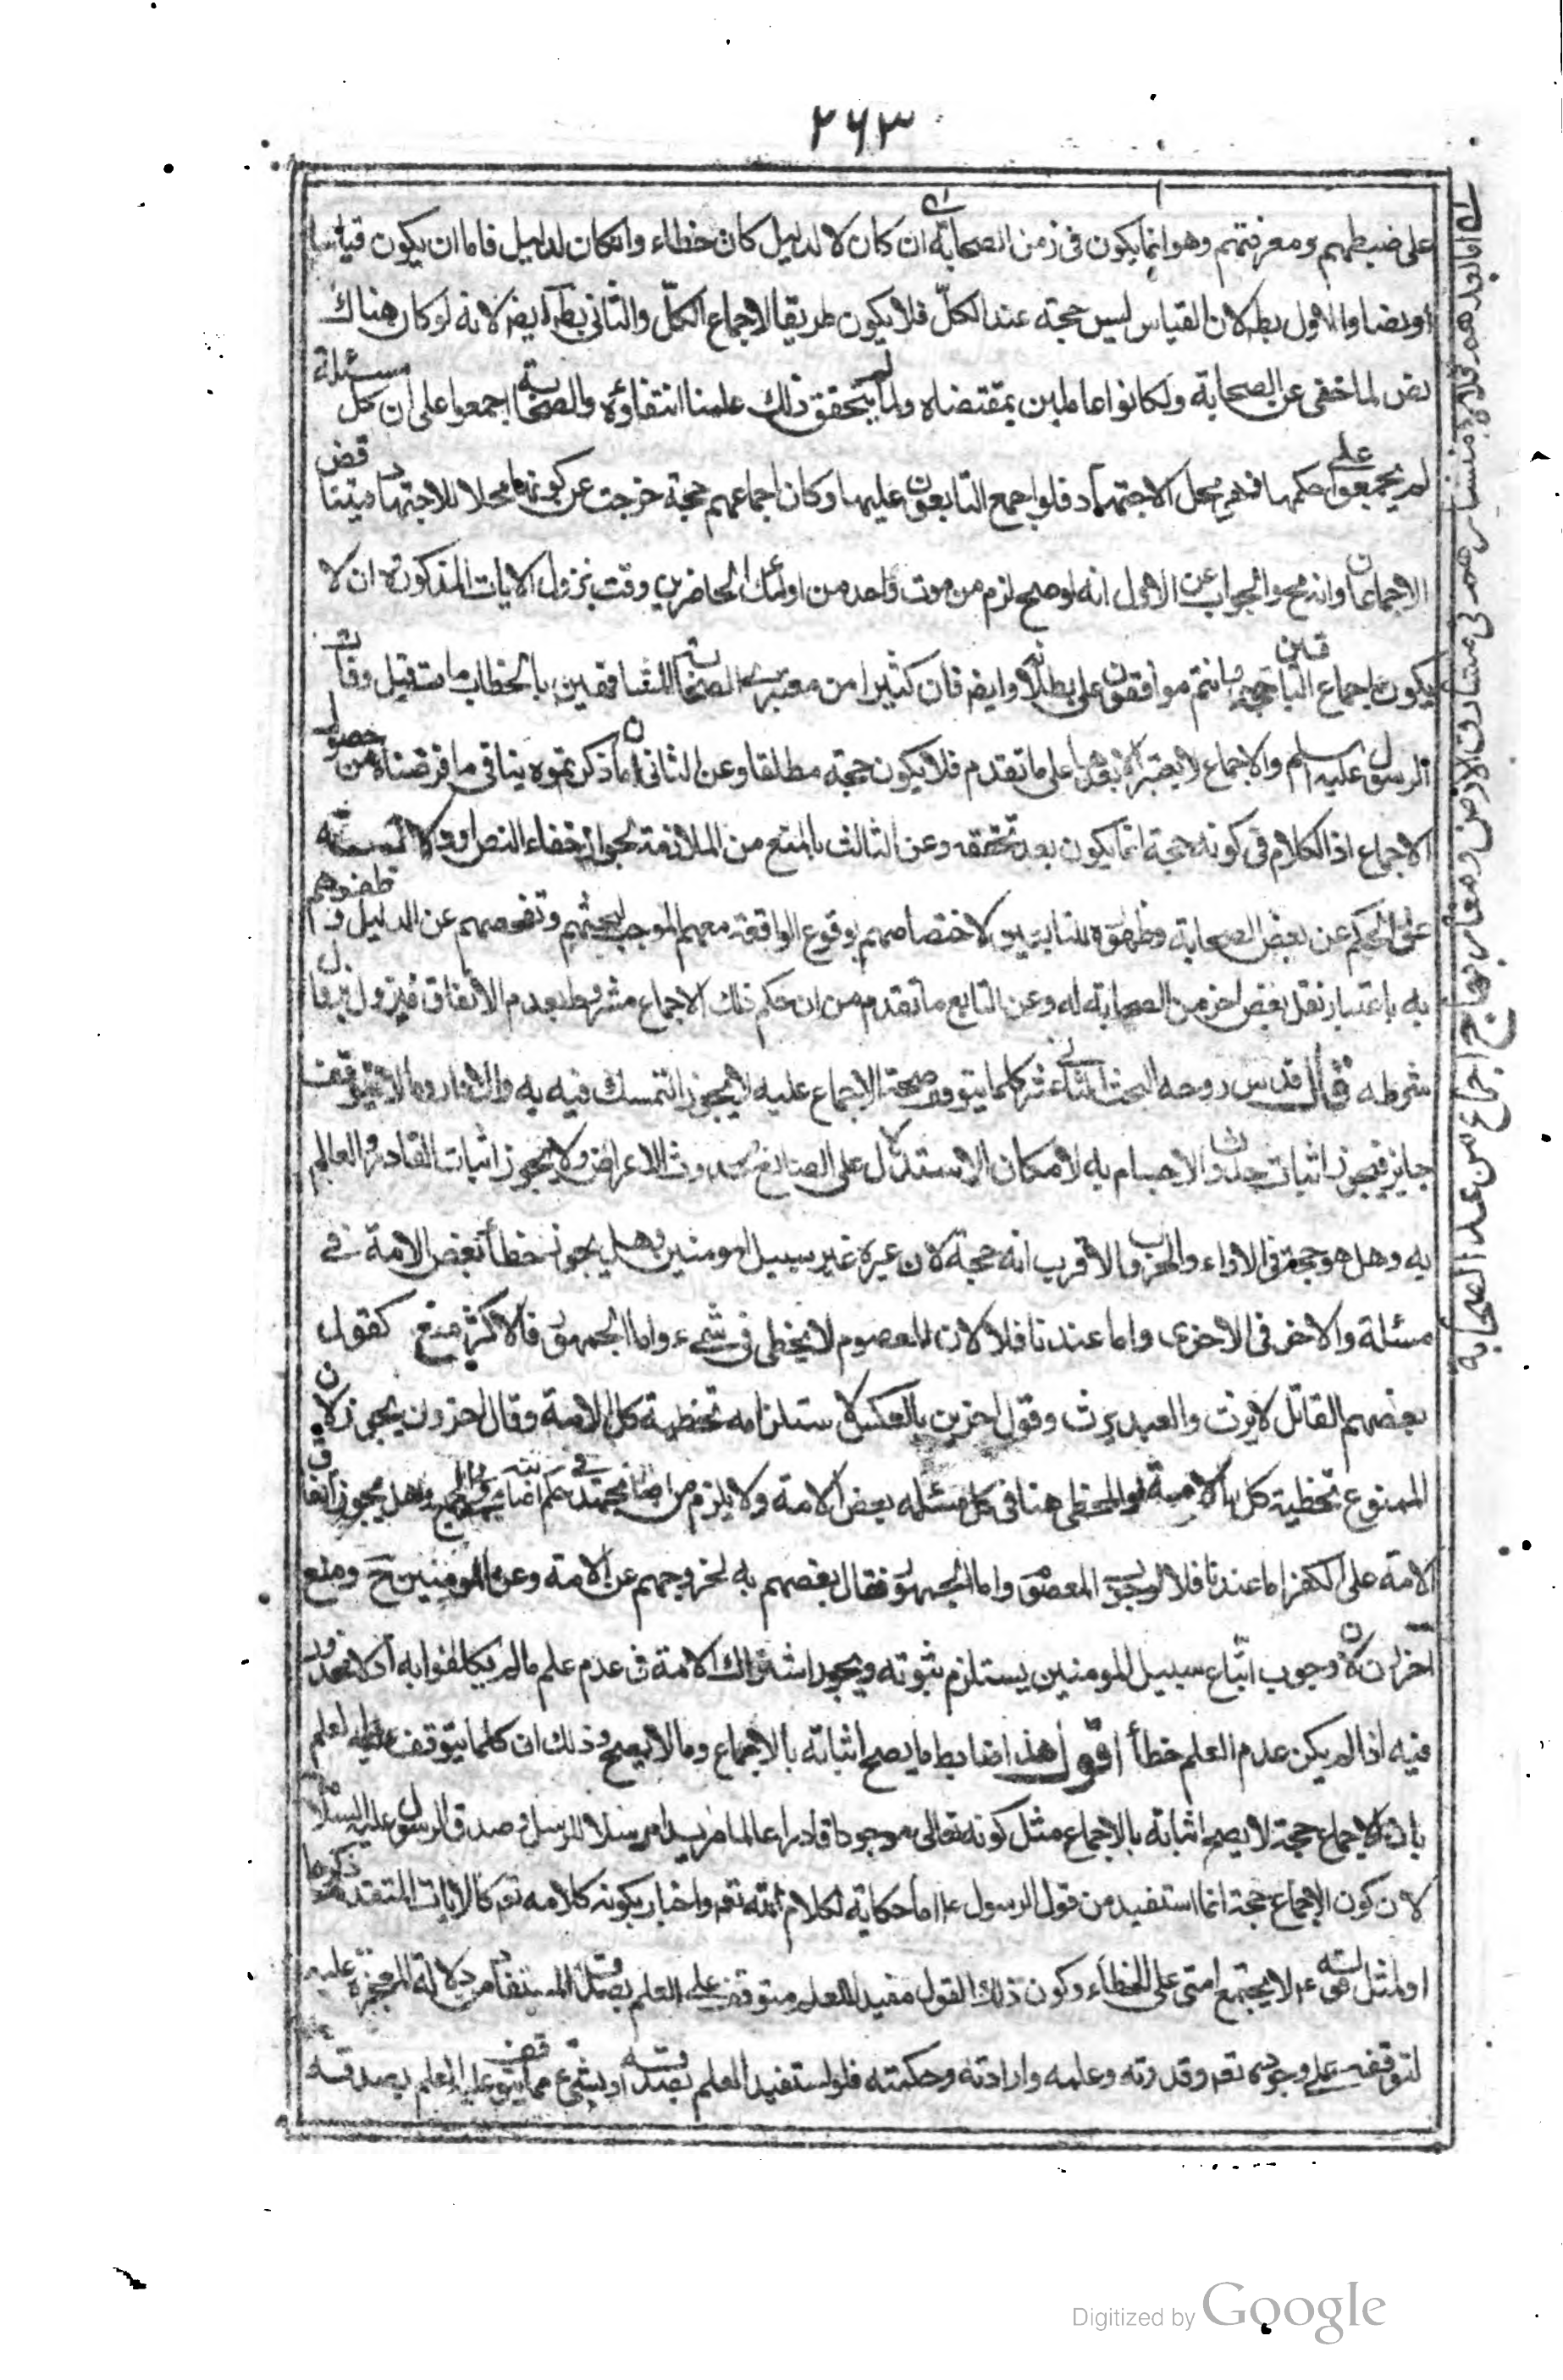 ۲۶۳
على ضبطهم ومعرفتهم وهو انما يكون فى زمن الصحابة ان كان لا لدليل كان خطاء وان كان لدليل فاما ان يكون قياسا
او نصا والاول بط لان القياس ليس حجة عند الكل فلا يكون طريقا لاجماع الكل والثانى بط ايض لانه لو كان هناك
نص لما خفى عن الصحابة ولكانوا عاملين بمقتضاه ولما لم يتحقق ذلك علمنا انتفاؤه والصحابة اجمعوا على ان كل مسئلة
لم يجمعوا على حكمها فهى محل الاجتهاد فلو اجمع التابعون عليها وكان اجماعهم حجة خرجت عن كونها محلا للاجتهاد فيتناقض
الاجماعان وانه مح والجواب عن الاول انه لو صح لزم من موت واحد من اولئك الحاضرين وقت نزول الايات المذكورة ان لا
يكون اجماع الباقين حجة وانتم موافقون على بطلانه وايض فان كثيرا من معتبرى الصحابة المشافهين بالخطاب مات قبل وفات
الرسول عليه السلم والاجماع لا يعتبر الا بعدها على ما تقدم فلا يكون حجة مطلقا وعن الثانى ان ما ذكرتموه ينافى ما فرضناه من حصول
الاجماع اذ الكلام فى كونه حجة انما يكون بعد تحققه وعن الثالث بالمنع من الملازمة لجواز خفاء النص او دلالته
على الحكم عن بعض الصحابة وظهوره للتابعين لاختصاصهم بوقوع الواقعة معهم الموجب لبحثهم وتفحصهم عن الدليل وظفرهم
به باعتبار نقل بعض اخر من الصحابة له وعن الرابع ما تقدم من ان حكم ذلك الاجماع مشروط بعدم الاتفاق فيزول بزوال
شرطه قال قدس روحه البحث الثانى عشر كلما يتوقف صحة الاجماع عليه لا يجوز التمسك فيه به والا دار وما لا يتوقف
جايز فيجوز اثبات حدوث الاجسام به لامكان الاستدلال على الصانع بحدوث الاعراض ولا يجوز اثبات القادر والعالم
به وهل هو حجة فى الاراء والحروب الاقرب انه حجة لان غيره غير سبيل المومنين وهل يجوز خطأ بعض الامة فى
مسئلة والاخر فى الاخرى واما عندنا فلا لان المعصوم لا يخطى فى شىء واما الجمهور فالاكثر منع كقول
بعضهم القاتل لا يرث والعبد يرث وقول اخرين بالعكس لاستلزامه تخطية كل الامة وقال اخرون يجوز لان
الممنوع تخطية كل الامة والمخطى هنا فى كل مسئلة بعض الامة ولا يلزم من وهل يجوز اتفاق
الامة على الكفر اما عندنا فلا لوجود المعصوم واما الجمهور فقال بعضهم به لخروجهم عن الامة وعن المومنين ح ومنع
اخرون لان وجوب اتباع سبيل المومنين يستلزم ثبوته ويجوز اشتراك الامة فى عدم علم ما لم يكلفوا به اذ لا محذور
فيه اذا لم يكن عدم العلم خطأ اقول هذا ضابط ما يصح اثباته بالاجماع وما لا يصح وذلك ان كلما يتوقف عليه العلم
بان الاجماع حجة لا يصح اثباته بالاجماع مثل كونه تعالى موجودا قادرا عالما مريدا مرسلا للرسل وصدق الرسول عليه السلام
لان كون الاجماع حجة انما استفيد من قول الرسول ع اما حكاية لكلام الله تعم واخبار بكونه كلامه تعم كالايات المتقدمة ذكرها
او لمثل قوله ع لا يجتمع امتى على الخطاء وكون ذلك القول مفيدا للعلم متوقف على العلم بصدقه المستفاد من دلالة المعجزة عليه
لتوقفه على وجوده تعم وقدرته وعلمه وارادته وحكمته فلو استفيد العلم بصدقه او بشىء مما يتوقف عليه العلم بصدقه
اما بعدهم فلا لانتشارهم فى مشارق الارض ومغاربها اجماع من عدا الصحابة
Digitized by Google